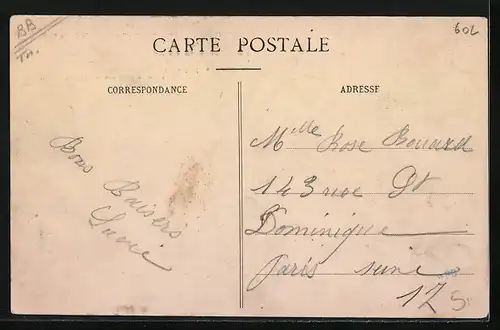 BB
602
CARTE POSTALE
CORRESPONDANCE
ADRESSE
Bons
Baisers
Lucie
Mlle Rose Bonard
143 rue St
Dominique
Paris seine
12